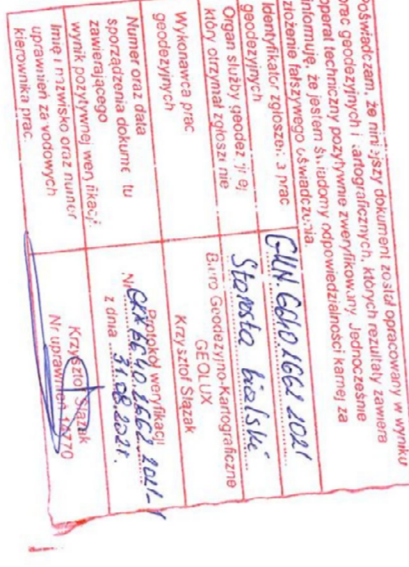 Poświadczam, że niniejszy dokument został opracowany w wyniku
prac geodezyjnych i kartograficznych, których rezultaty zawiera
operat techniczny pozytywnie zweryfikowany. Jednocześnie
informuję, że jestem świadomy odpowiedzialności karnej za
złożenie fałszywego oświadczenia
Identyfikator zgłoszenia prac
geodezyjnych
GKN.6640.1662.2021
Organ służby geodezyjnej
który otrzymał zgłoszenie
Starosta bialski
Wykonawca prac
geodezyjnych
Biuro Geodezyjno-Kartograficzne
GEOLUX
Krzysztof Ślązak
Numer oraz data
sporządzenia dokumentu
zawierającego
wynik pozytywnej weryfikacji
Protokół weryfikacji
Nr GKN.6640.1662.2021-1
z dnia 31.08.2021r.
Imię i nazwisko oraz numer
uprawnień zawodowych
kierownika prac
Krzysztof Ślązak
Nr uprawnień